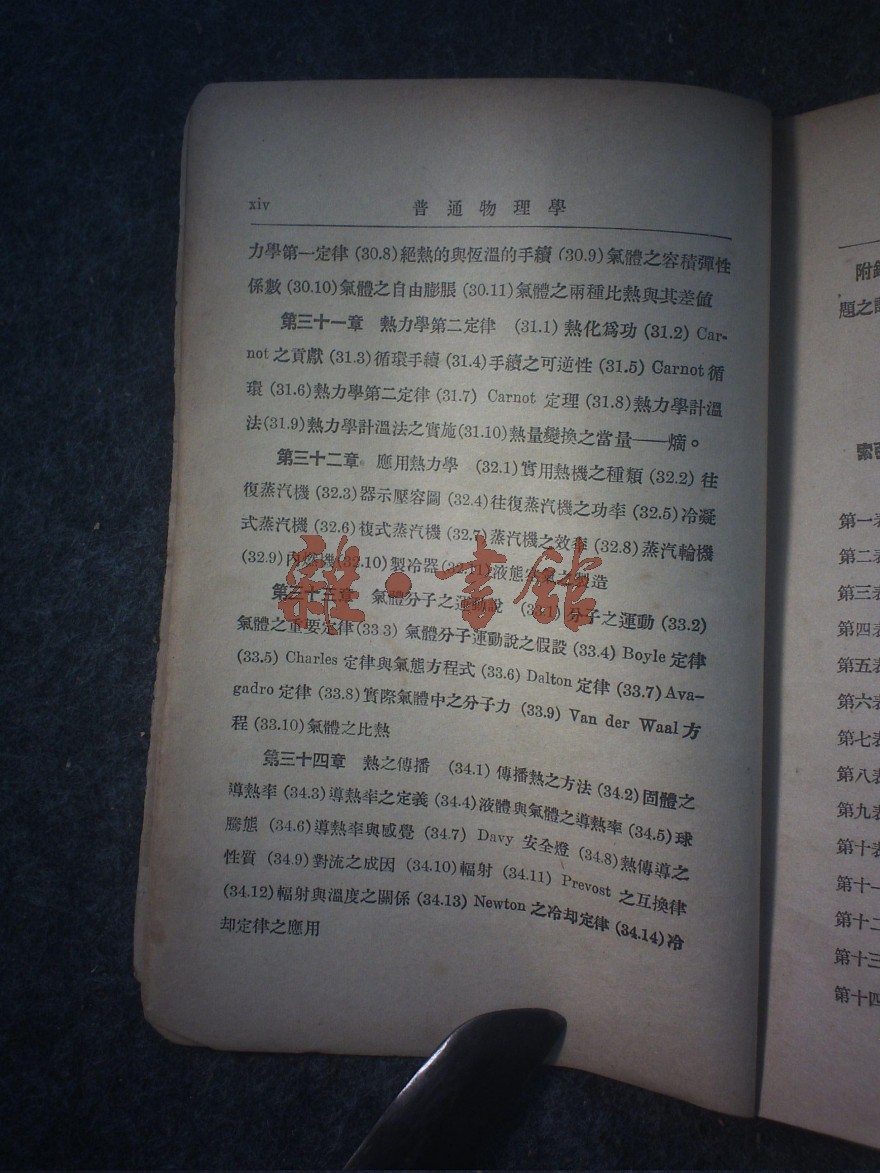 xiv 普通物理學
力學第一定律 (30.8)絕熱的與恆溫的手續 (30.9)氣體之容積彈性
係數 (30.10)氣體之自由膨脹 (30.11)氣體之兩種比熱與其差値
第三十一章 熱力學第二定律 (31.1) 熱化爲功 (31.2) Car-
not 之貢獻 (31.3)循環手續 (31.4)手續之可逆性 (31.5) Carnot 循
環 (31.6)熱力學第二定律 (31.7) Carnot 定理 (31.8)熱力學計溫
法(31.9)熱力學計溫法之實施(31.10)熱量變換之當量——熵。
第三十二章 應用熱力學 (32.1)實用熱機之種類 (32.2) 往
復蒸汽機 (32.3)器示壓容圖 (32.4)往復蒸汽機之功率 (32.5)冷凝
式蒸汽機 (32.6)複式蒸汽機 (32.7)蒸汽機之效率 (32.8)蒸汽輪機
(32.9)內燃機(32.10)製冷器(32.11)液態空氣之製造
第三十三章 氣體分子之運動說 (33.1) 分子之運動 (33.2)
氣體之重要定律(33.3) 氣體分子運動說之假設 (33.4) Boyle 定律
(33.5) Charles 定律與氣態方程式 (33.6) Dalton 定律 (33.7) Ava-
gadro 定律 (33.8)實際氣體中之分子力 (33.9) Van der Waal 方
程 (33.10)氣體之比熱
第三十四章 熱之傳播 (34.1) 傳播熱之方法 (34.2) 固體之
導熱率 (34.3)導熱率之定義 (34.4)液體與氣體之導熱率 (34.5) 球
騰態 (34.6)導熱率與感覺 (34.7) Davy 安全燈 (34.8)熱傳導之
性質 (34.9)對流之成因 (34.10)輻射 (34.11) Prevost 之互換律
(34.12)輻射與溫度之關係 (34.13) Newton 之冷却定律 (34.14)冷
却定律之應用
雜·書館
附
題之
索
第一表
第二表
第三表
第四表
第五表
第六表
第七表
第八表
第九表
第十表
第十一
第十二
第十三
第十四